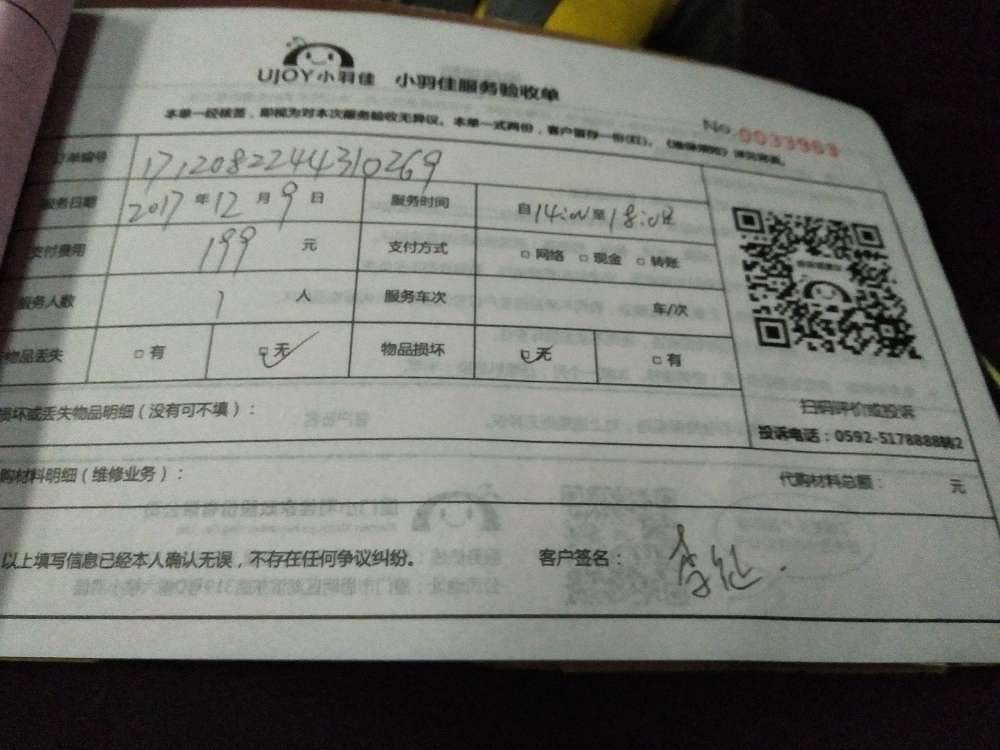 UJOY小羽佳 小羽佳服务验收单
本单一经核签，即视为对本次服务验收无异议。本单一式两份，客户留存一份(红)。
No. 0033969
订单编号 1712082244310269
服务日期 2017年12月9日 服务时间 自14:00至18:00
支付费用 199元 支付方式 □网络 □现金 □转账
服务人数 1人 服务车次 车/次
物品丢失 □有 □无 物品损坏 □无 □有
扫码评价或投诉
投诉电话：0592-5178888转2
损坏或丢失物品明细（没有可不填）：
购材料明细（维修业务）： 代购材料总额： 元
以上填写信息已经本人确认无误，不存在任何争议纠纷。 客户签名：